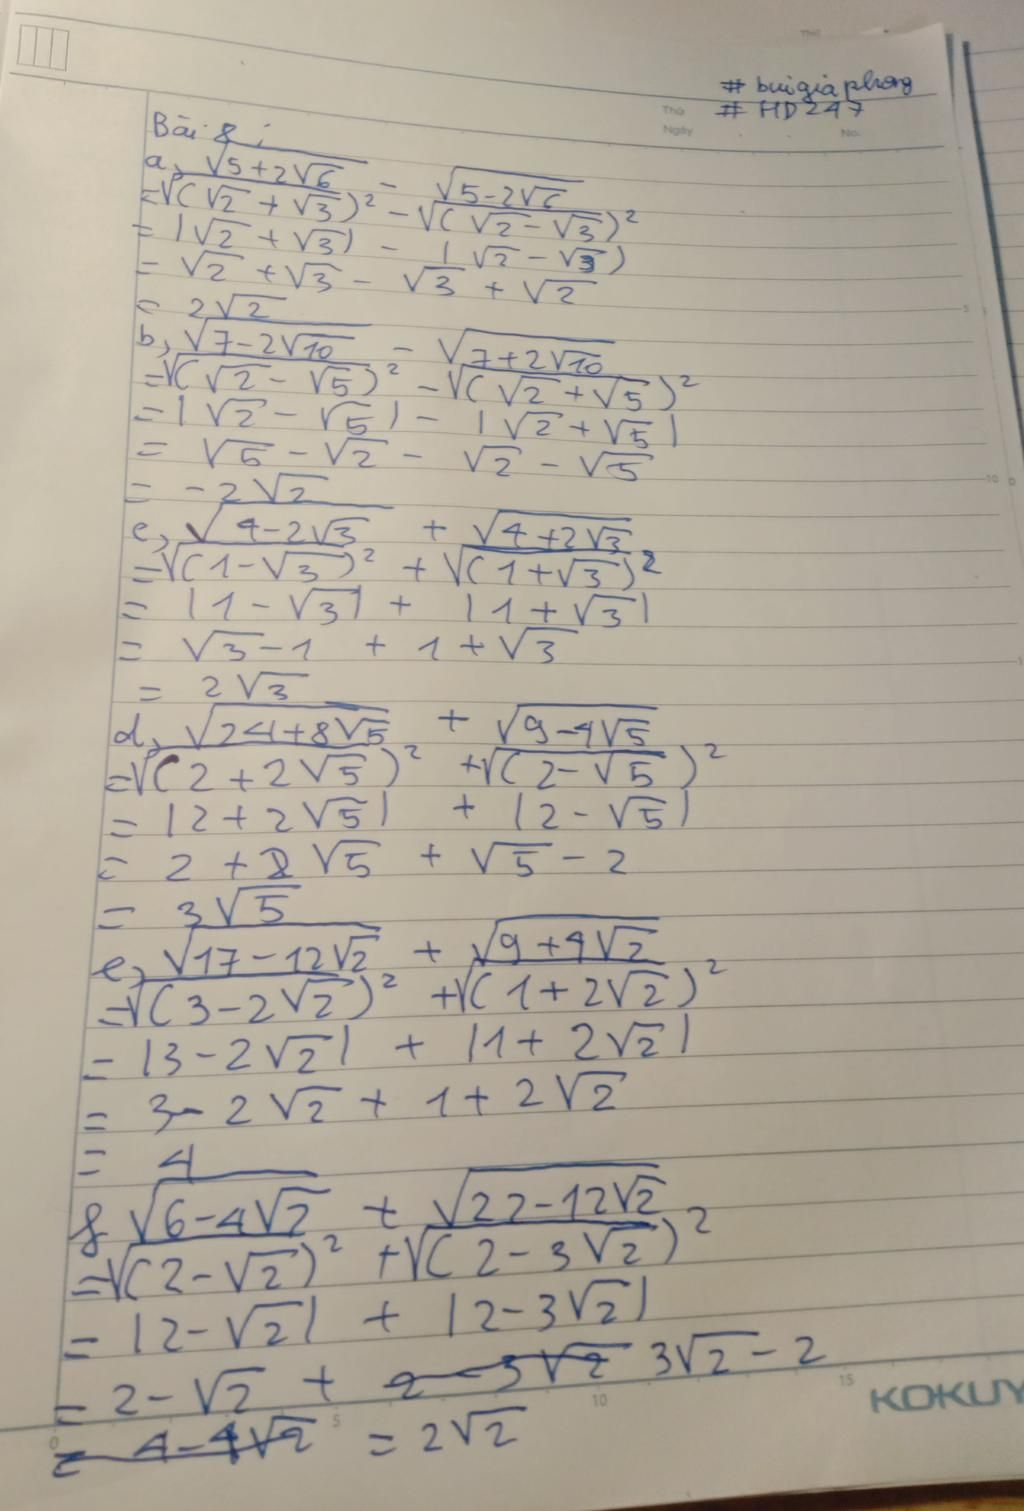 # buigiaphong
Thứ
# HD247
Ngày
No.
Bài 8:
a, √(5+2√6) - √(5-2√6)
=√(√2 + √3)² - √(√2 - √3)²
= |√2 + √3| - |√2 - √3|
= √2 + √3 - √3 + √2
= 2√2
b, √(7-2√10) - √(7+2√10)
=√(√2 - √5)² - √(√2 + √5)²
= |√2 - √5| - |√2 + √5|
= √5 - √2 - √2 - √5
= -2√2
c, √(4-2√3) + √(4+2√3)
=√(1-√3)² + √(1+√3)²
= |1-√3| + |1+√3|
= √3-1 + 1+√3
= 2√3
d, √(24+8√5) + √(9-4√5)
=√(2+2√5)² +√(2-√5)²
= |2+2√5| + |2-√5|
= 2+2√5 + √5-2
= 3√5
e, √(17-12√2) + √(9+4√2)
=√(3-2√2)² +√(1+2√2)²
= |3-2√2| + |1+2√2|
= 3-2√2 + 1+2√2
= 4
f √(6-4√2) + √(22-12√2)
=√(2-√2)² +√(2-3√2)²
= |2-√2| + |2-3√2|
= 2-√2 + 2-3√2 3√2-2
= 4-4√2 = 2√2
5
10
0
5
10
15
KOKUY